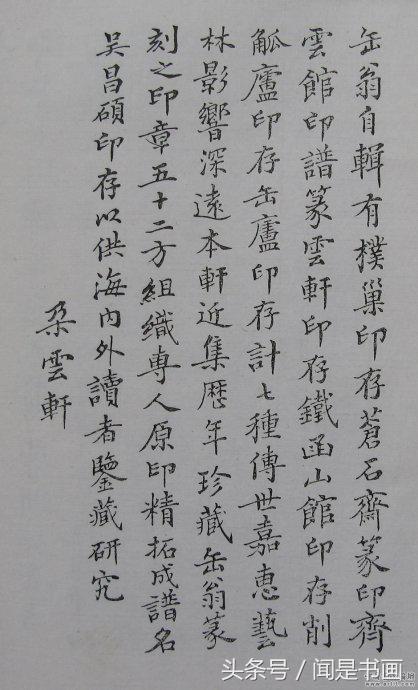 缶翁自輯有樸巢印存蒼石齋篆印齊
雲館印譜篆雲軒印存鐵函山館印存削
觚廬印存缶廬印存計七種傳世嘉惠藝
林影響深遠本軒近集歷年珍藏缶翁篆
刻之印章五十二方組織專人原印精拓成譜名
吴昌碩印存以供海内外讀者鑒藏研究
朵雲軒
头条号 / 闻是书画